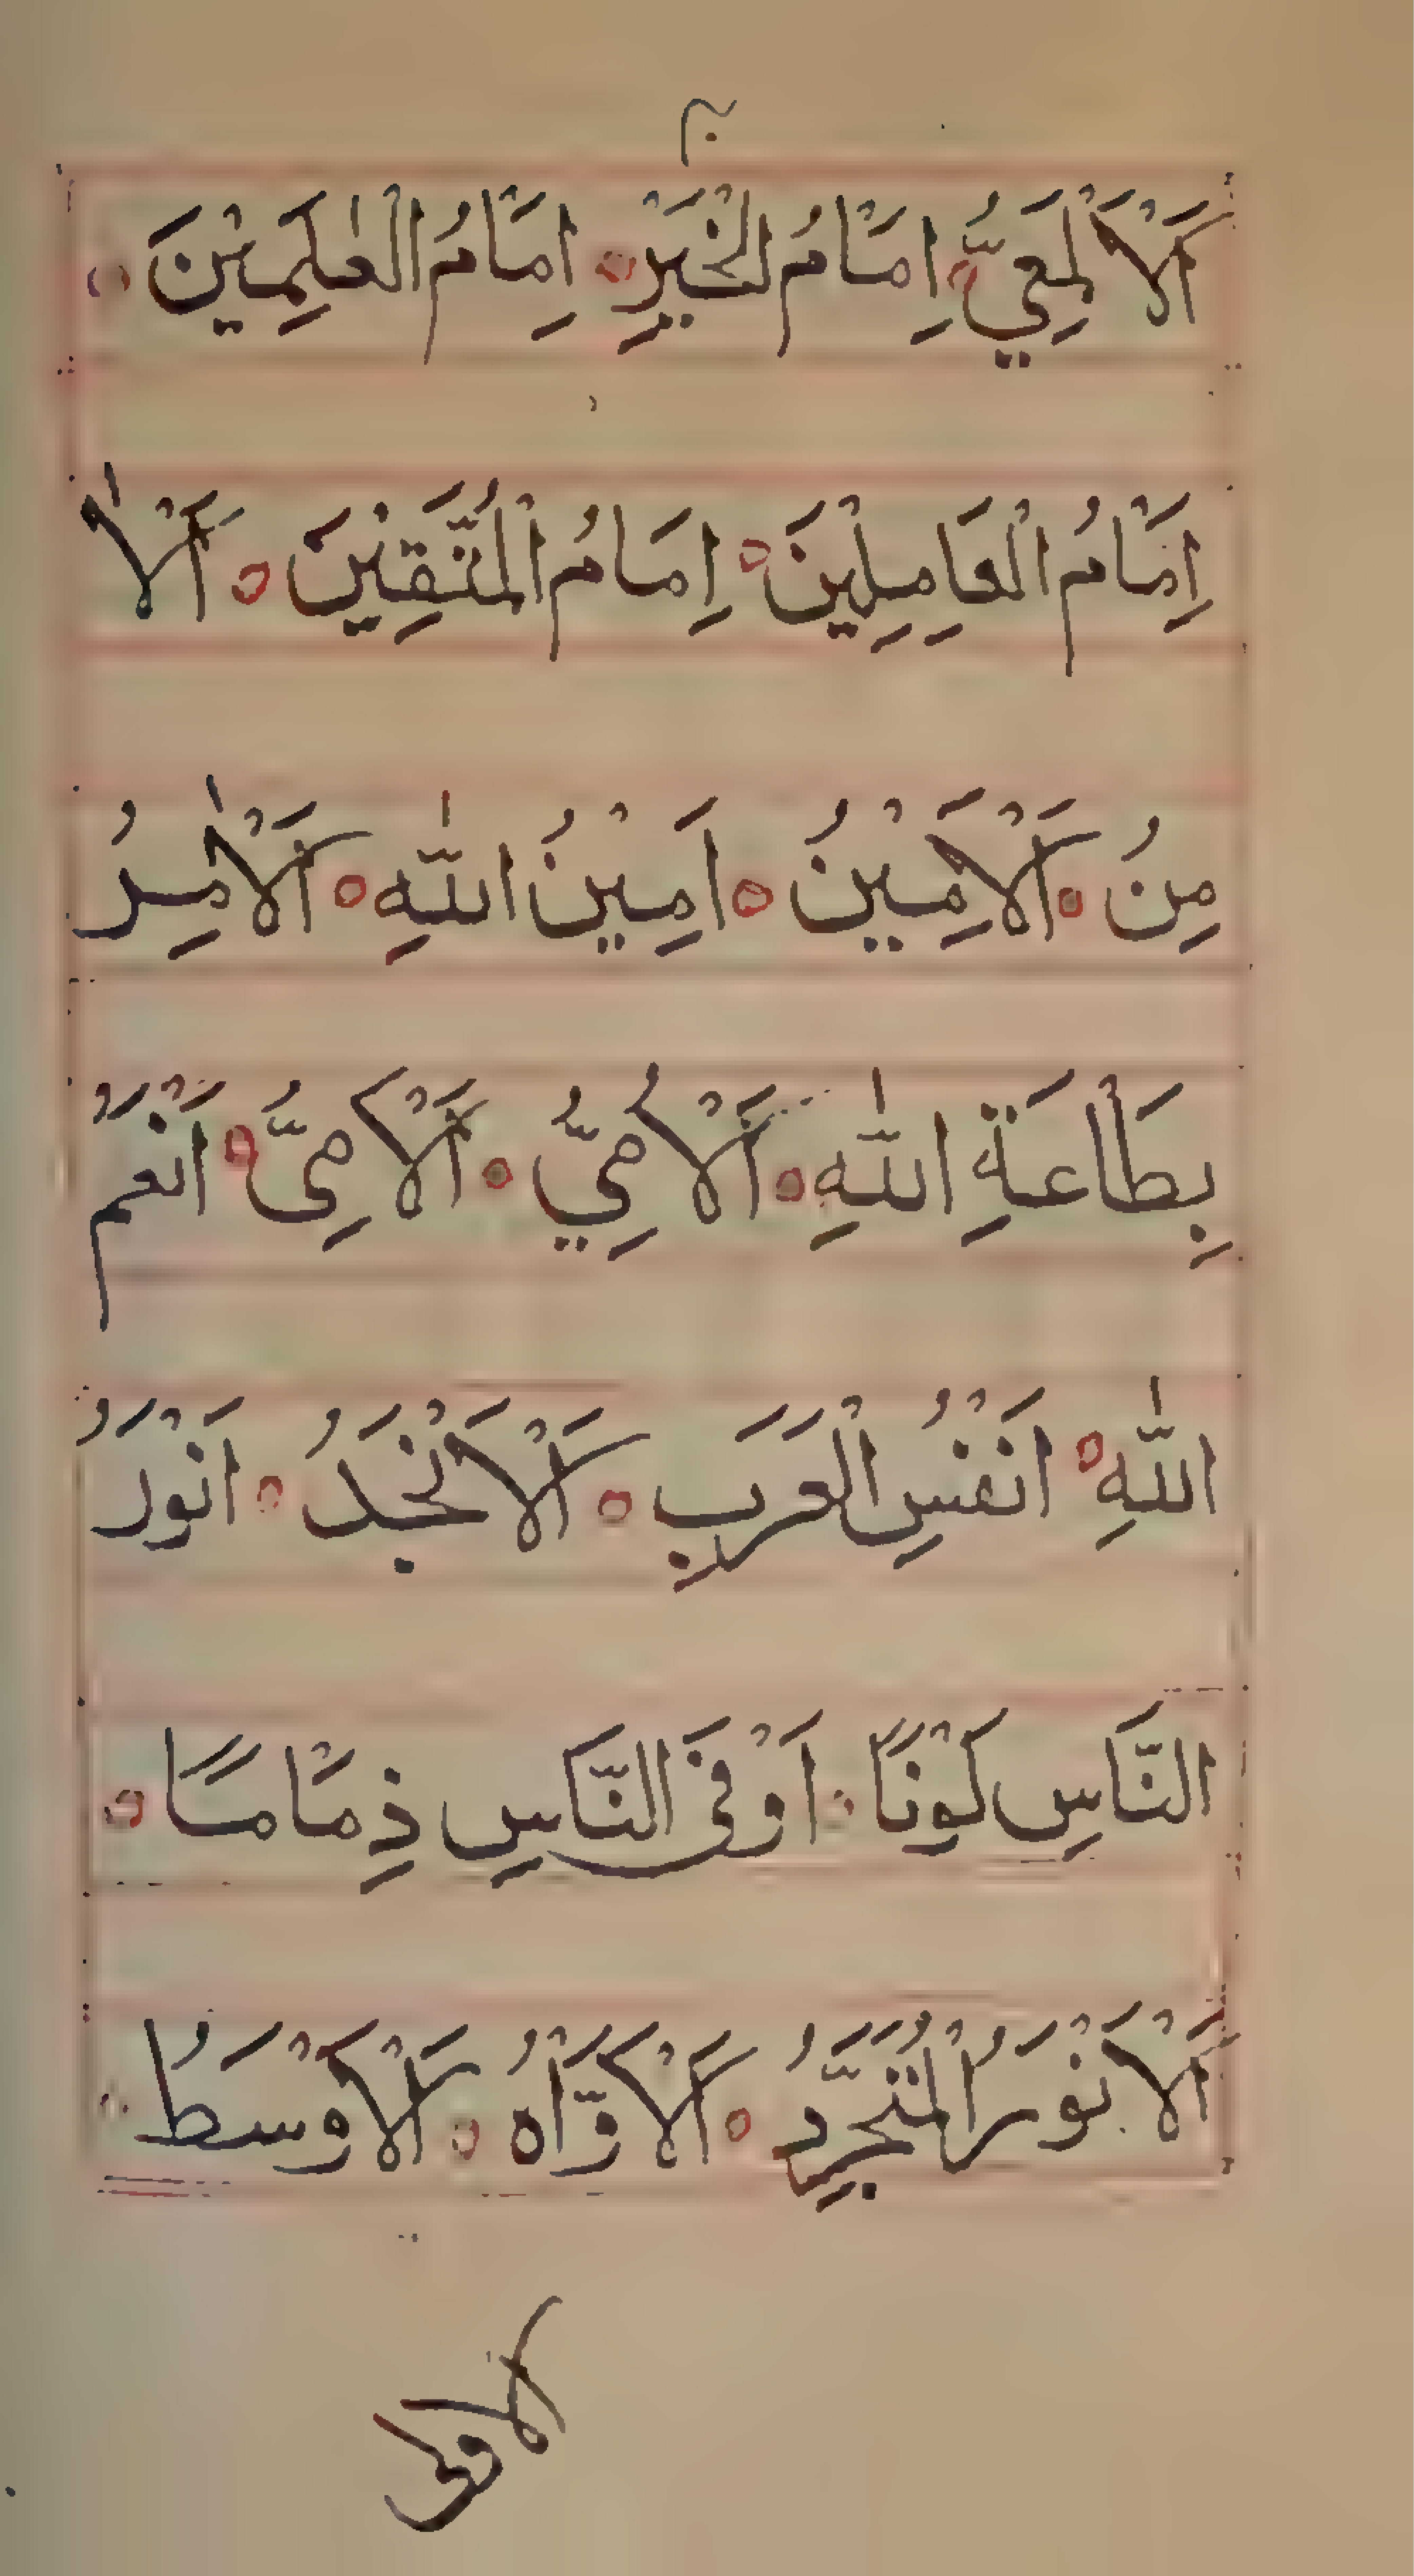 اَلْاَلْمَعِيُّ اِمَامُ الْخَيْرِ اِمَامُ الْعٰلَمِيْنَ
اِمَامُ الْعَامِلِيْنَ اِمَامُ الْمُتَّقِيْنَ اَلْاٰ
مِنُ اَلْاَمِيْنُ اَمِيْنُ اللّٰهِ اَلْاٰمِرُ
بِطَاعَةِ اللّٰهِ اَلْاُمِيُّ اَلْاَمِيُّ اَنْعَمُ
اللّٰهِ اَنْفُسِ الْعَرَبِ اَلْاَنْجَدُ اَنْوَرُ
النَّاسِ كَوْنًا اَوْفَى النَّاسِ ذِمَامًا
اَلْاَنْوَرُ الْمُتَجَرِّدُ اَلْاَوَّاهُ اَلْاَوْسَطُ
الاولى